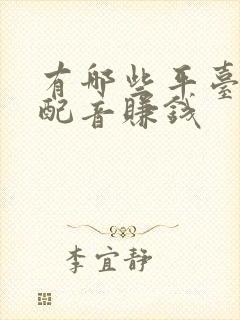 有哪些平臺
配音賺錢
李宜靜